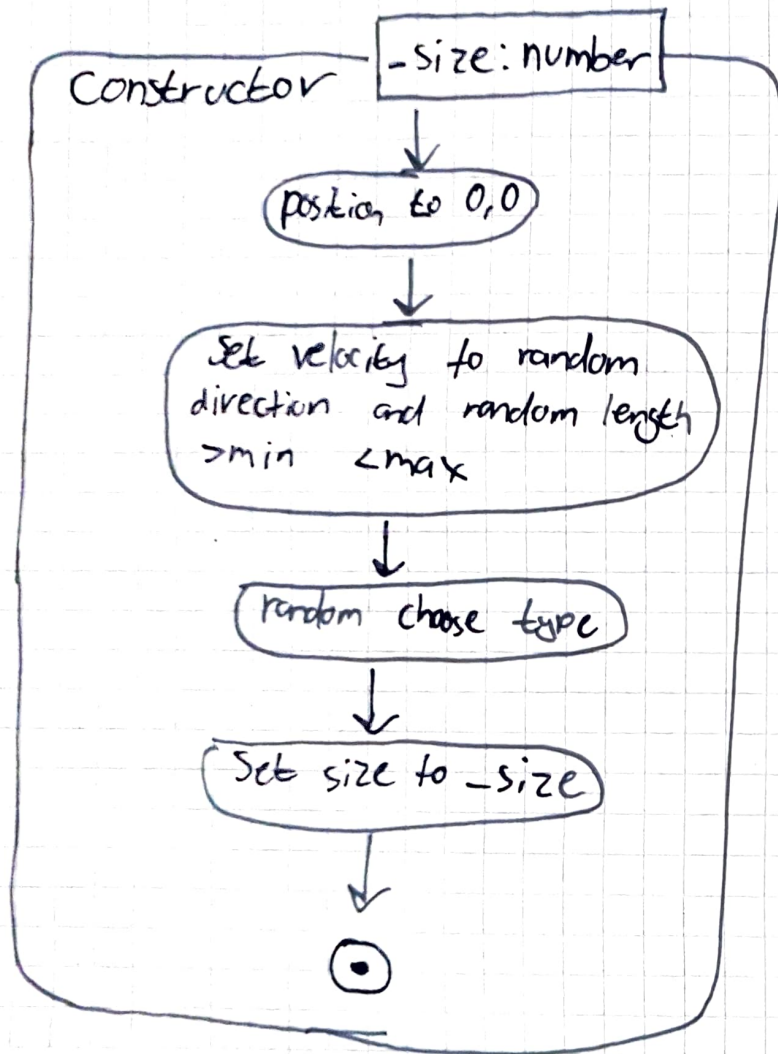 _size: number
Constructor
position to 0,0
Set velocity to random
direction and random length
>min <max
random choose type
Set size to _size